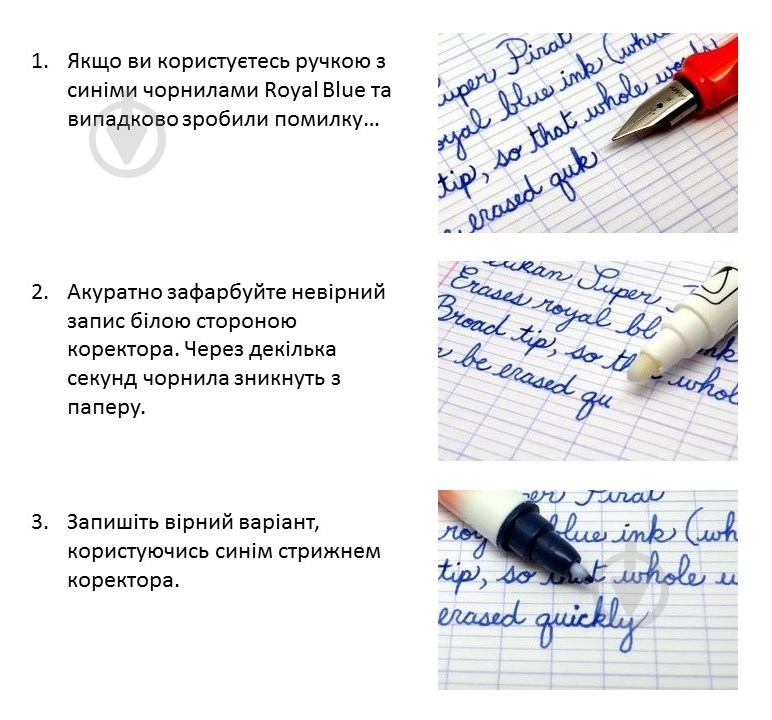 1. Якщо ви користуєтесь ручкою з
синіми чорнилами Royal Blue та
випадково зробили помилку...
uper Pirat
oyal blue ink (whu
tip, so that whole wo
erased quk
2. Акуратно зафарбуйте невірний
запис білою стороною
коректора. Через декілька
секунд чорнила зникнуть з
паперу.
likan Super
Erases royal bl nk
Broad tip, so th whol
be erased qu
3. Запишіть вірний варіант,
користуючись синім стрижнем
коректора.
er Pirat
roy blue ink (wh
tip, so that whole w
erased quickly